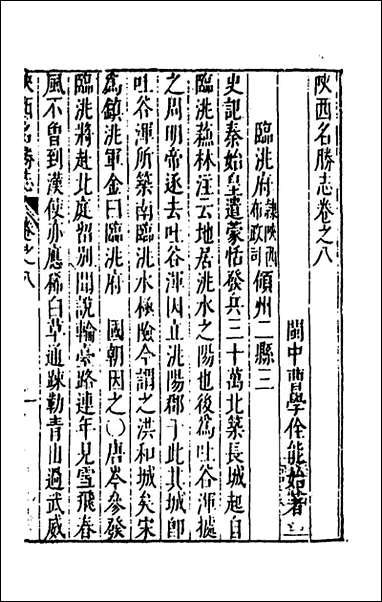 陝西名勝志卷之八
閩中曹學佺能始著
臨洮府隸陝西布政司領州二縣三
史記秦始皇遣蒙恬發兵三十萬北築長城起自
臨洮蘓林注云地居洮水之陽也後為吐谷渾據
之周明帝逐去吐谷渾因立洮陽郡于此其城即
吐谷渾所築南臨洮水極險今謂之洪和城矣宋
為鎮洮軍金曰臨洮府 國朝因之〇唐岑參發
臨洮將赴北庭留別聞說輪臺路連年見雪飛春
風不曾到漢使亦應稀白草通踈勒青山過武威
陝西名勝志
卷之八
一